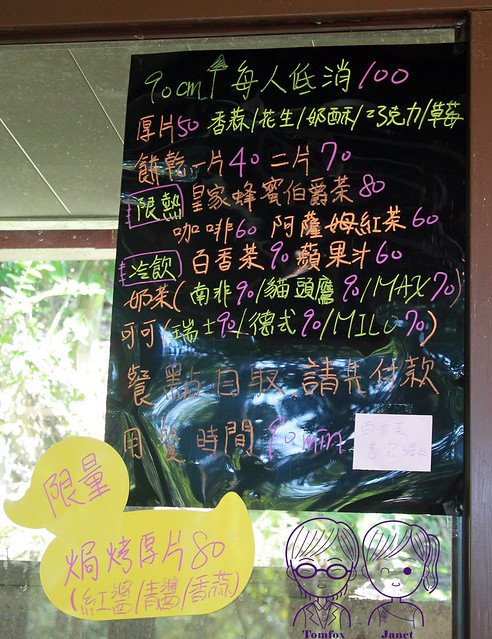 90cm↑每人低消100
厚片50 香蒜/花生/奶酥/巧克力/草莓
餅乾一片40 二片70
限熱 皇家蜂蜜伯爵茶80
咖啡60 阿薩姆紅茶60
冷飲 百香茶90 蘋果汁60
奶茶(南非90/貓頭鷹90/MAX70)
可可(瑞士90/德式90/MILO70)
餐點自取 請先付款
用餐時間90min
百香茶
限量
焗烤厚片80
(紅醬/青醬/香蒜)
Tomfox Janet